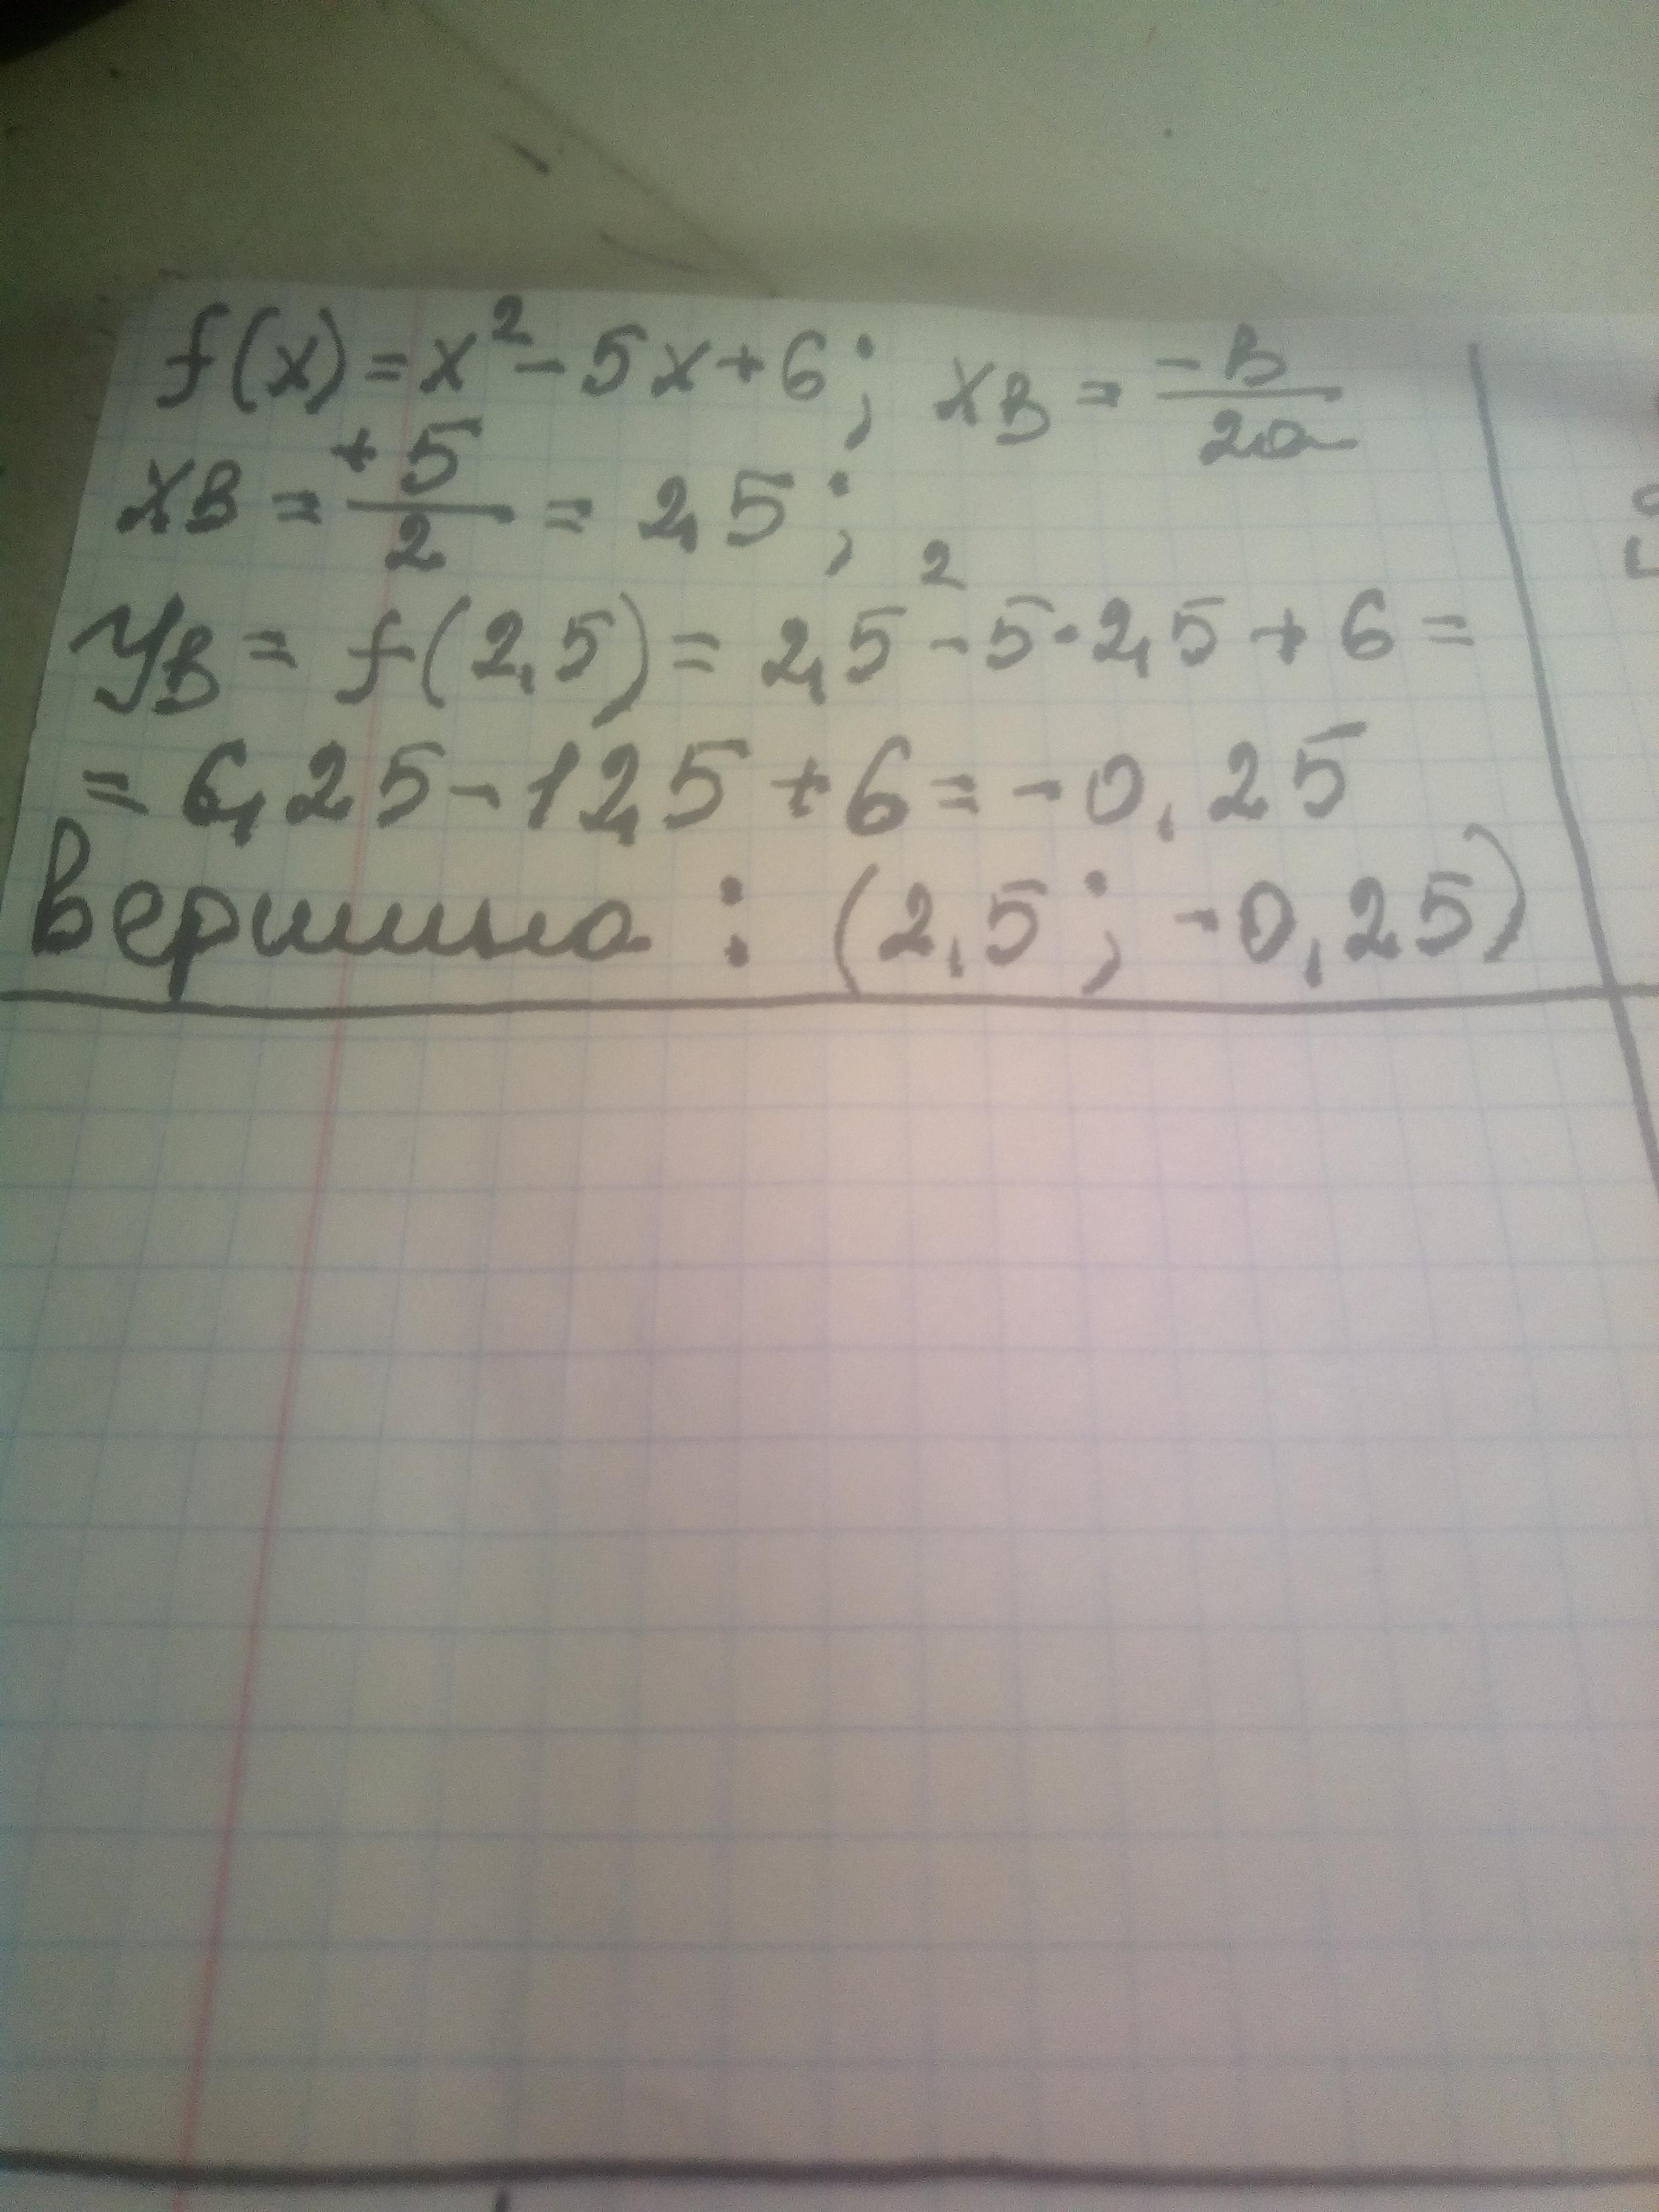 f(x) = x² - 5x + 6; xв = -в/2a
xв = +5/2 = 2,5;
yв = f(2,5) = 2,5² - 5·2,5 + 6 =
= 6,25 - 12,5 + 6 = -0,25
Вершина: (2,5; -0,25)